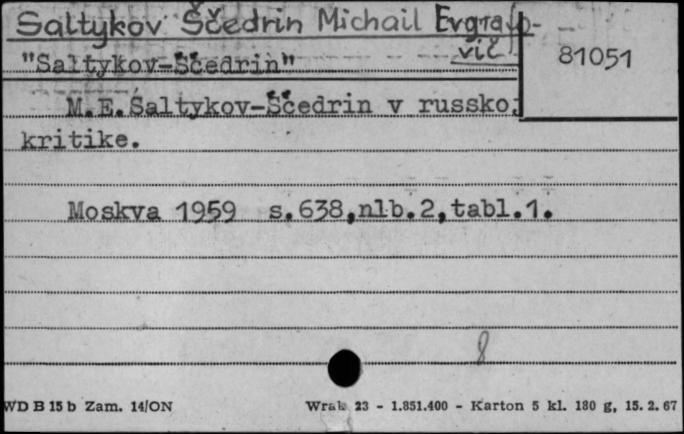 Saltykov Ščedrin Michail Evgrafo-
vič
81051
"Saltykov-Ščedrin"
M.E.Saltykov-Ščedrin v russkoj
kritike.
Moskva 1959 s.638,nlb.2,tabl.1.
8
WD B 15 b Zam. 14/ON
Wrab 23 - 1.851.400 - Karton 5 kl. 180 g, 15. 2. 67